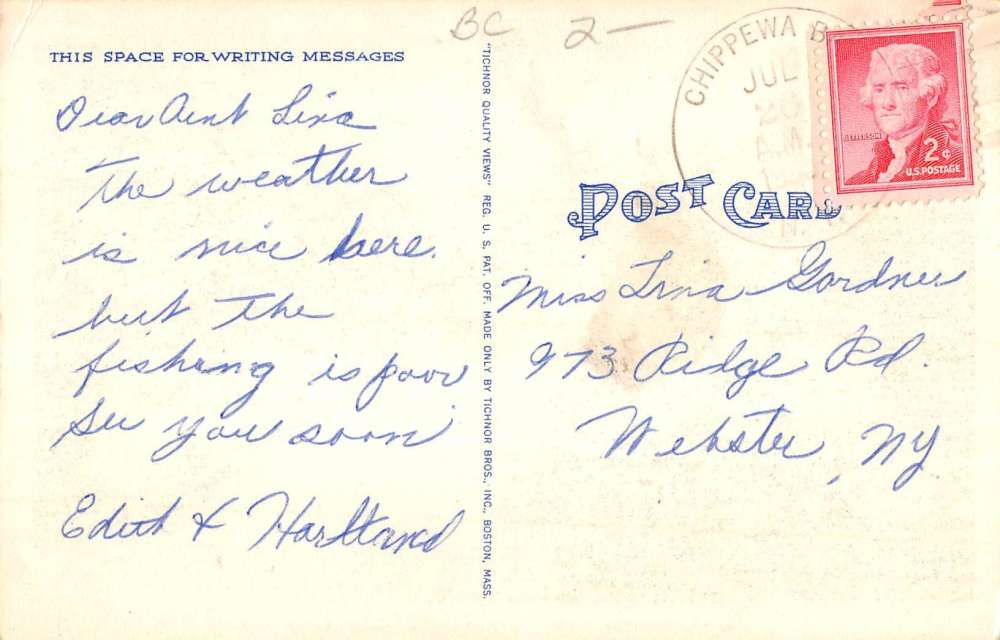 BC 2—
THIS SPACE FOR WRITING MESSAGES
Dear Aunt Lina
The weather
is nice here.
but the
fishing is poor
See you soon
Edith & Harltand
"TICHNOR QUALITY VIEWS" REG. U. S. PAT. OFF. MADE ONLY BY TICHNOR BROS., INC., BOSTON, MASS.
CHIPPEWA B
JUL
A.M.
JEFFERSON
2¢
U.S. POSTAGE
POST CARD
Miss Lina Gardner
973 Ridge Rd.
Webster, NY